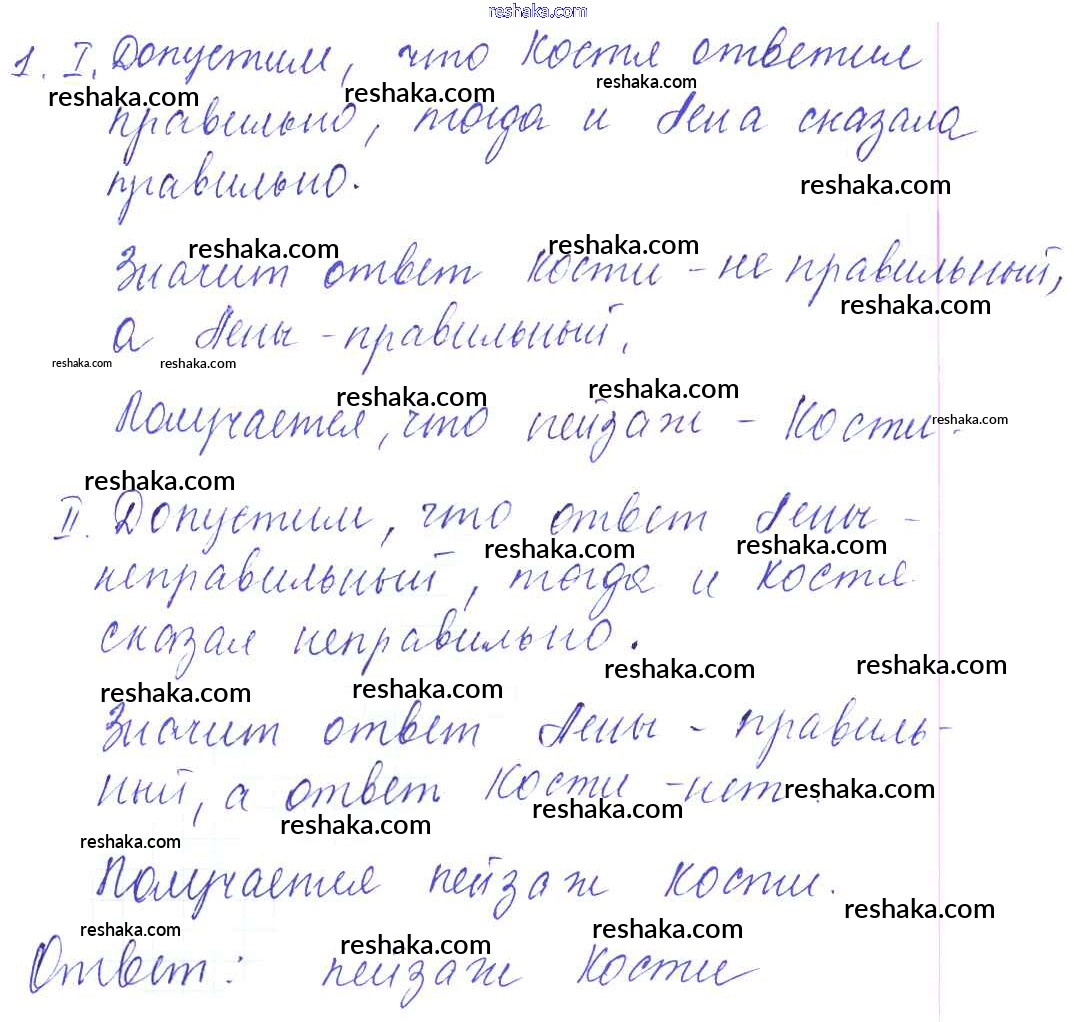 reshaka.com
1. I. Допустим, что Костя ответил
reshaka.com reshaka.com reshaka.com
правильно, тогда и Лена сказала
правильно.
reshaka.com
reshaka.com reshaka.com
Значит ответ Кости - не правильный,
reshaka.com
а Лены - правильный.
reshaka.com reshaka.com
reshaka.com reshaka.com
Получается, что пейзаж - Кости.
reshaka.com
reshaka.com
II. Допустим, что ответ Лены -
reshaka.com reshaka.com
неправильный, тогда и Костя
сказал неправильно.
reshaka.com reshaka.com
reshaka.com reshaka.com
Значит ответ Лены - правиль-
ный, а ответ Кости - нет.
reshaka.com
reshaka.com reshaka.com
reshaka.com
Получается пейзаж Кости.
reshaka.com
reshaka.com reshaka.com reshaka.com
Ответ: пейзаж Кости